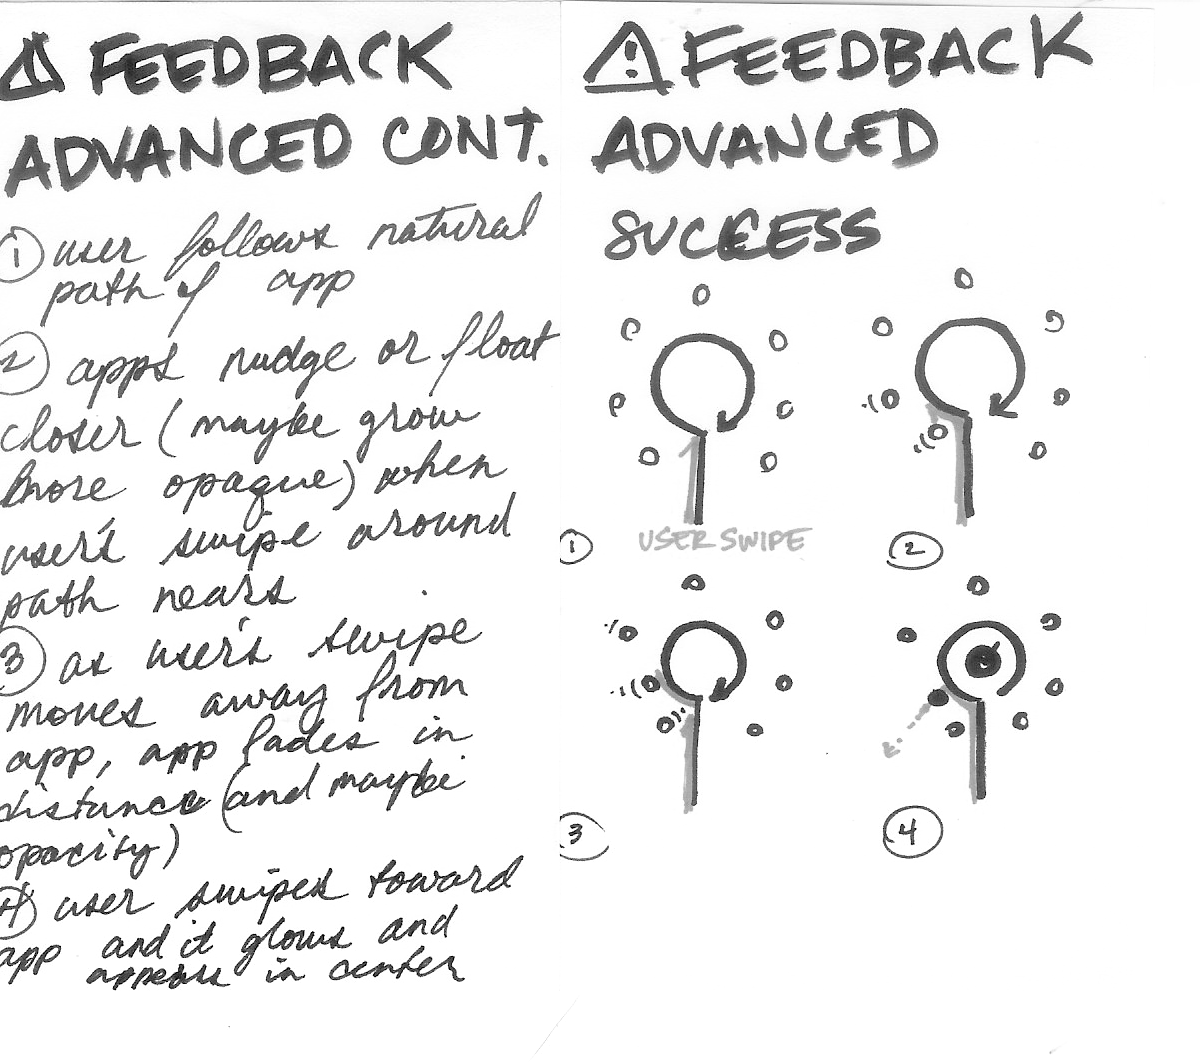 FEEDBACK
ADVANCED CONT.
① user follows natural
path of app
② apps nudge or float
closer (maybe grow
more opaque) when
user's swipe around
path nears
③ as user's swipe
moves away from
app, app fades in
distance (and maybe
opacity)
④ user swipes toward
app and it glows and
appears in center
FEEDBACK
ADVANCED
SUCCESS
① USER SWIPE
②
③
④